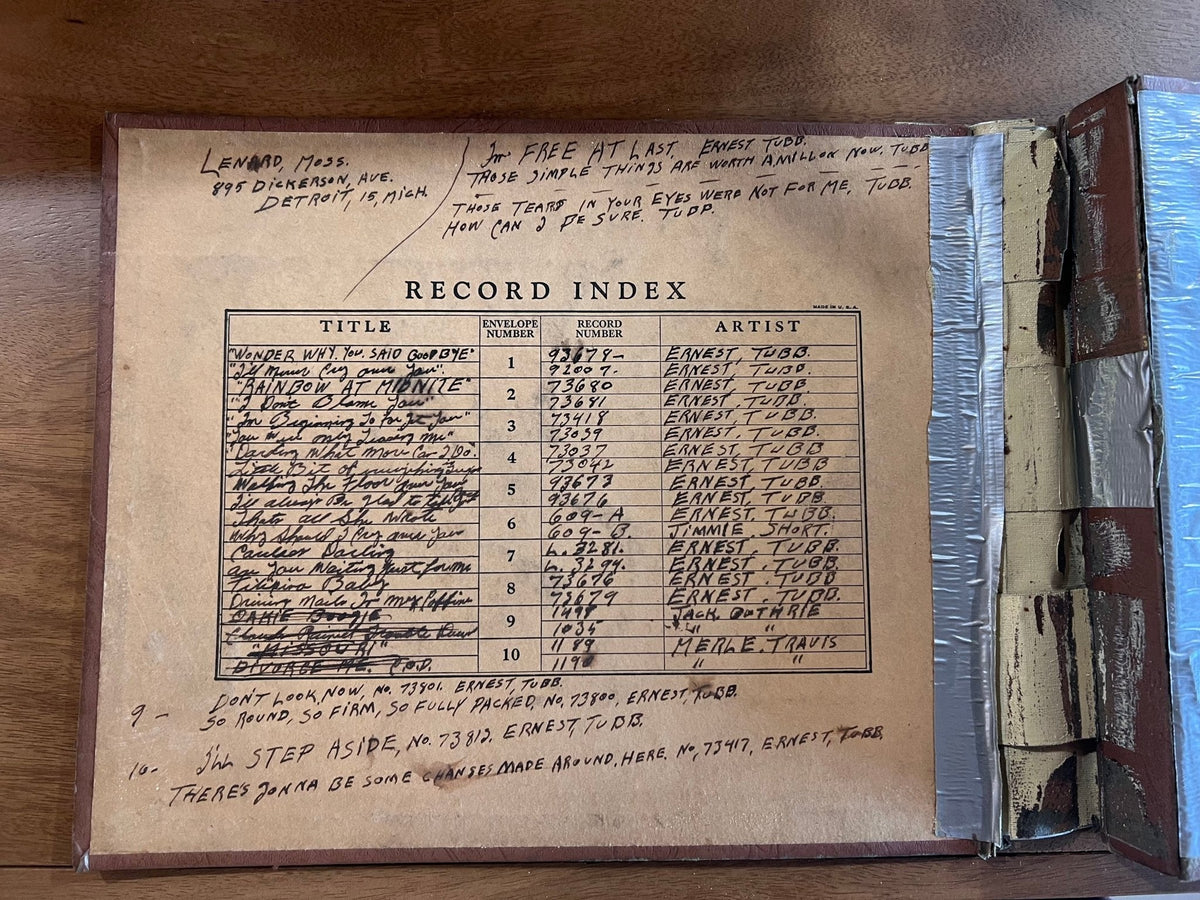 LENARD, MOSS.
895 DICKERSON, AVE.
DETROIT, 15, MICH.
Im FREE AT LAST ERNEST TUBB.
THOSE SIMPLE THINGS ARE WORTH A MILLON NOW. TUBB
THOSE TEARS IN YOUR EYES WERE NOT FOR ME, TUBB.
HOW CAN I BE SURE. TUBB.
RECORD INDEX
MADE IN U.S.A.
TITLE ENVELOPE NUMBER RECORD NUMBER ARTIST
"WONDER WHY YOU SAID GOODBYE" 1 93678- ERNEST, TUBB.
"I'll Never Cry over You". 92007. ERNEST, TUBB.
"RAINBOW AT MIDNITE" 2 73680 ERNEST, TUBB
"I Don't Blame You" 73681 ERNEST, TUBB.
"Im Beginning To Forget You" 3 73418 ERNEST, TUBB.
"You Were only Teasing Me" 73039 ERNEST, TUBB.
"Darling What More Can I Do. 4 73037 ERNEST, TUBB
Little Bit of 73042 ERNEST, TUBB
Walking The Floor over You 5 93673 ERNEST, TUBB
I'll always Be glad to 93676 ERNEST, TUBB.
Thats all She Wrote 6 609-A ERNEST, TUBB.
Why Should I Cry over You 609-B. JIMMIE, SHORT.
Careless Darling 7 L. 3281. ERNEST, TUBB.
are You Waiting Just for Me L. 3294. ERNEST, TUBB.
Filipino Baby 8 73676 ERNEST, TUBB
Driving Nails In My Coffin 73679 ERNEST, TUBB.
OAKIE BOOGIE 9 JACK GUTHRIE
" "
"MISSOURI" 10 1189 MERLE, TRAVIS
DIVORCE ME. C.O.D. 119 " "
9 - DON'T LOOK, NOW, No. 73801. ERNEST, TUBB.
SO ROUND, SO FIRM, SO FULLY PACKED, No, 73800, ERNEST, TUBB.
10- I'LL STEP ASIDE, No. 73812, ERNEST, TUBB.
THERE'S GONNA BE SOME CHANGES MADE AROUND, HERE. No, 73417, ERNEST, TUBB